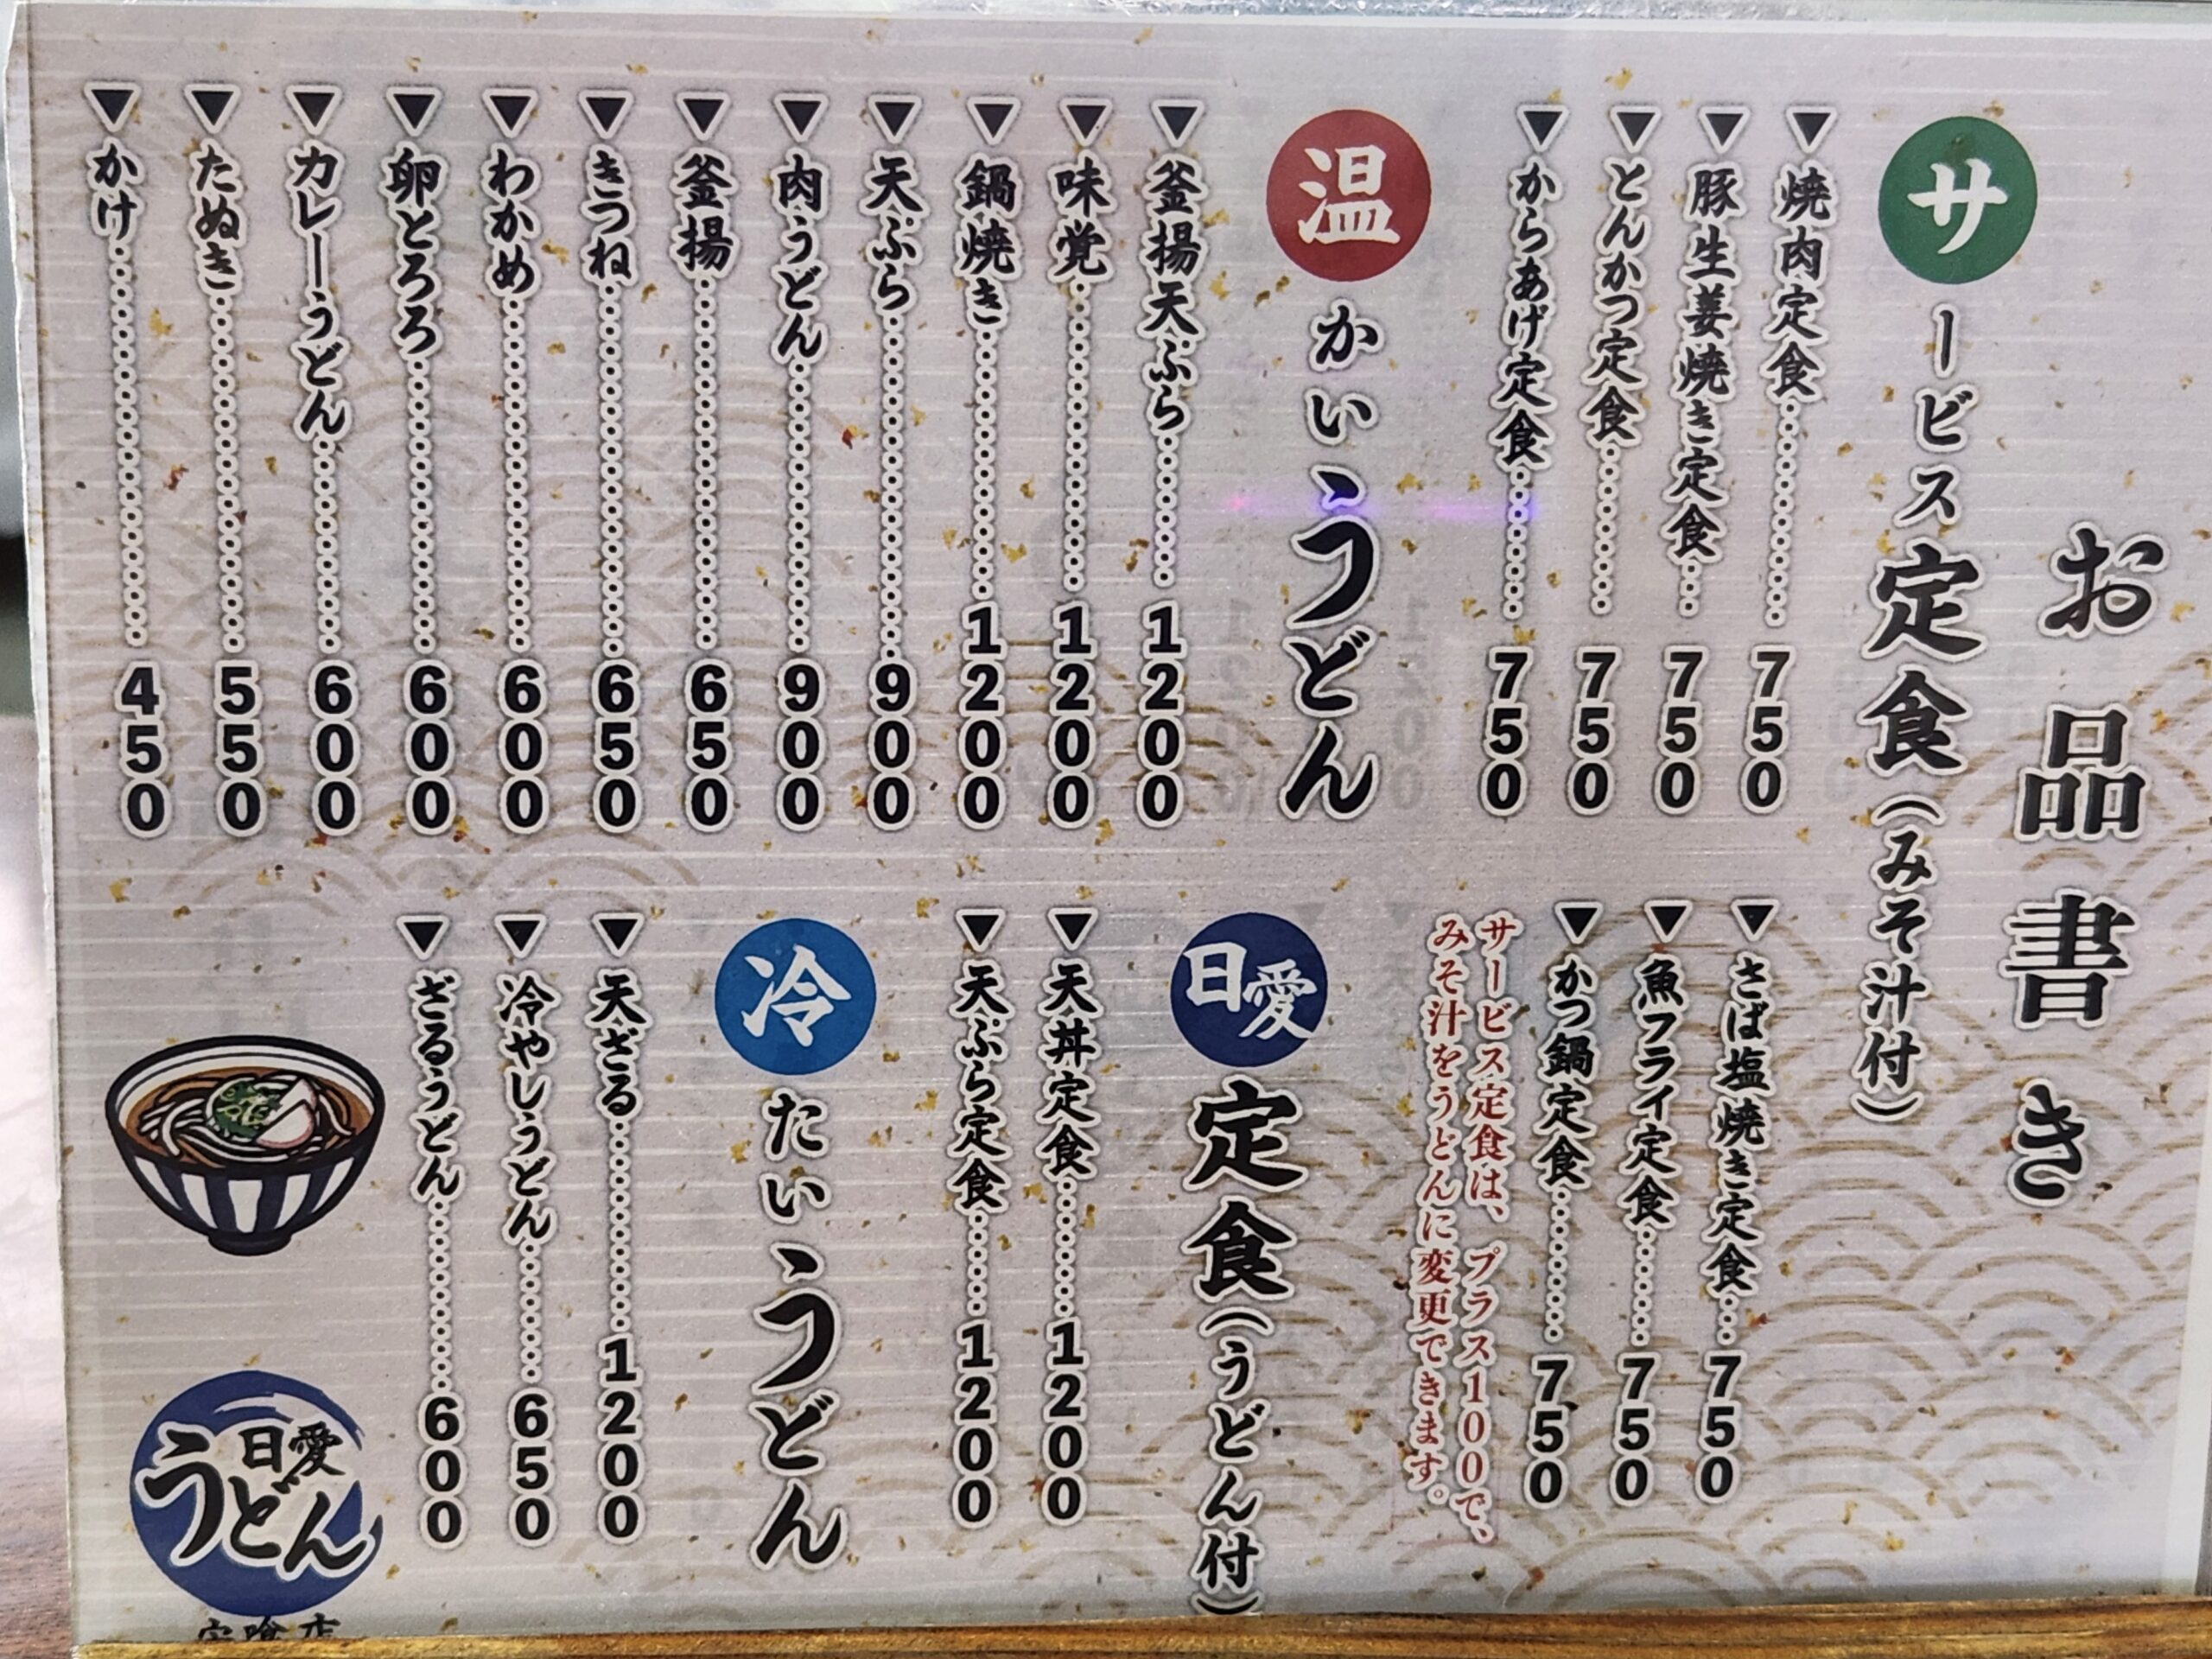 お品書き
サービス定食(みそ汁付)
焼肉定食 750
豚生姜焼き定食 750
とんかつ定食 750
からあげ定食 750
さば塩焼き定食 750
魚フライ定食 750
かつ鍋定食 750
サービス定食は、プラス100で、
みそ汁をうどんに変更できます。
温かいうどん
釜揚天ぷら 1200
味覚 1200
鍋焼き 1200
天ぷら 900
肉うどん 900
釜揚 650
きつね 650
わかめ 600
卵とろろ 600
カレーうどん 600
たぬき 550
かけ 450
日愛定食(うどん付)
天丼定食 1200
天ぷら定食 1200
冷たいうどん
天ざる 1200
冷やしうどん 650
ざるうどん 600
日愛
うどん